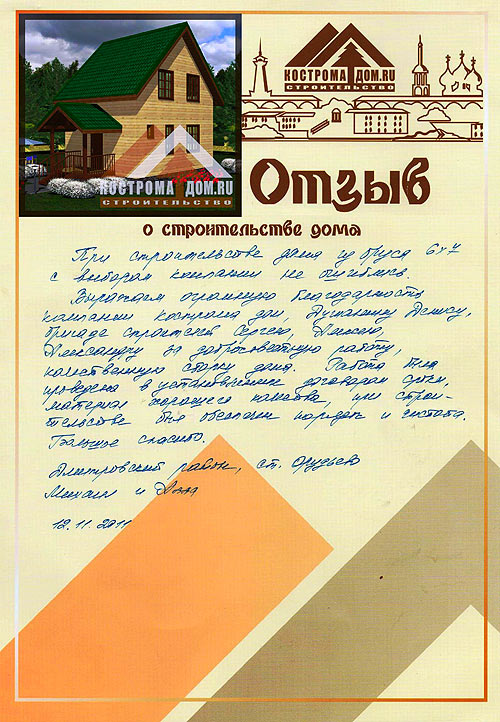 КОСТРОМА ДОМ.RU
СТРОИТЕЛЬСТВО
КОСТРОМА ДОМ.RU
СТРОИТЕЛЬСТВО
Отзыв
о строительстве дома
При строительстве дома из бруса 6х7
с выбором компании не ошиблись.
Выражаем огромную благодарность
компании кострома дом, Денису,
бригаде строителей Сергею,
Александру за добросовестную работу,
качественную сборку дома. Работа была
проведена в установленные договором сроки,
материал хорошего качества, при строи-
тельстве был обеспечен порядок и чистота.
Большое спасибо.
Дмитровский район, ст.
Михаил и
12.11.2011